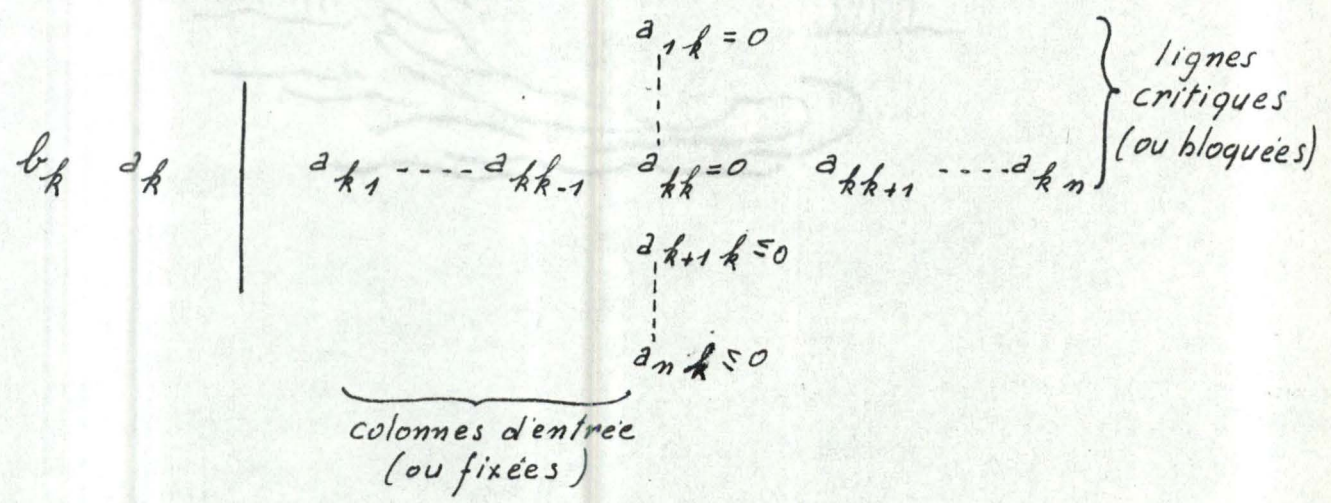 a₁ k = 0
lignes
critiques
(ou bloquées)
b_k a_k | a_k1 ----- a_kk-1 a_kk = 0 a_kk+1 ----- a_kn
a_k+1 k ≤ 0
a_n k ≤ 0
colonnes d'entrée
(ou fixées)